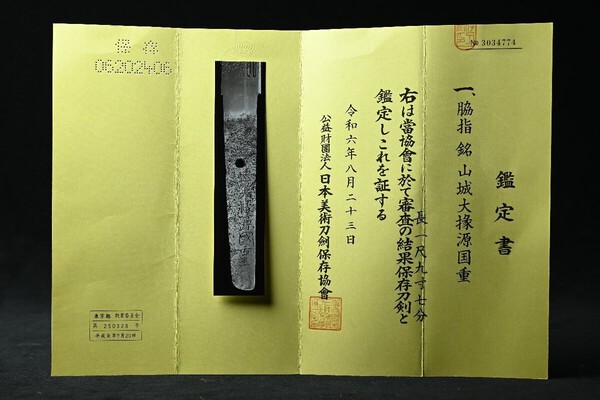 № 3034774
鑑定書
一、脇指 銘 山城大掾源国重
長 一尺九寸七分
右は當協會に於て審査の結果保存刀剣と
鑑定しこれを証する
令和六年八月二十三日
公益財團法人 日本美術刀劍保存協會
保存
06202406
東京都 教育委員会
第 250328 号